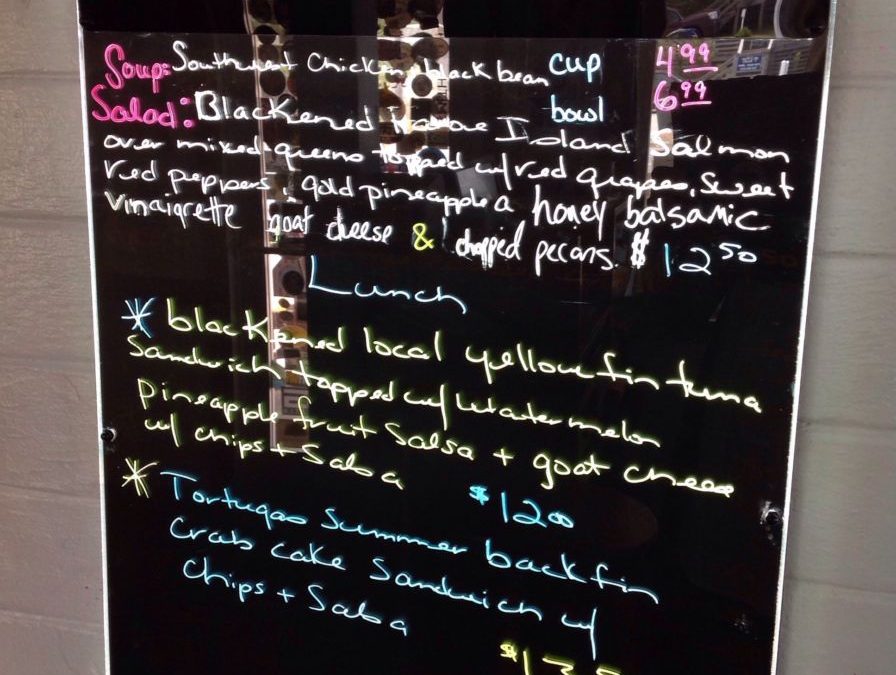 Soup: Southwest Chicken black bean cup 4.99
bowl 6.99
Salad: Blackened Island Salmon
over mixed greens topped w/ red grapes, sweet
red peppers, gold pineapple a honey balsamic
vinaigrette goat cheese & chopped pecans. $12.50
Lunch
* blackened local yellowfin tuna
Sandwich topped w/ watermelon
pineapple fruit salsa + goat cheese
w/ chips + Salsa $12.00
* Tortugas Summer backfin
Crab cake Sandwich w/
Chips + Salsa